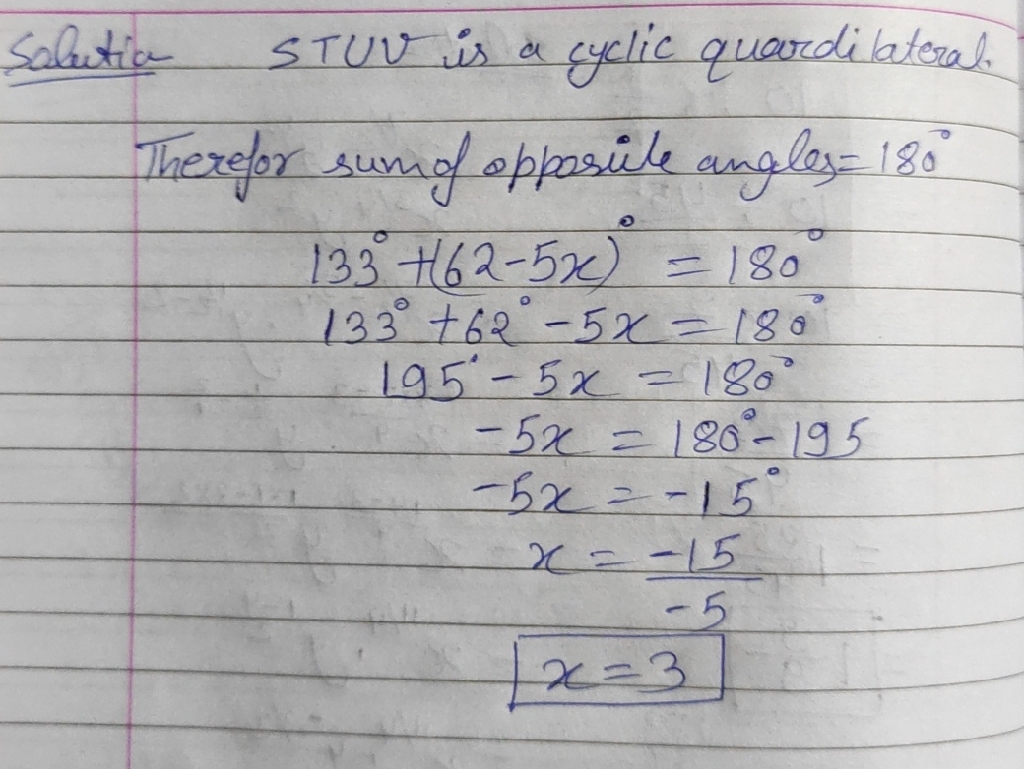 Solution STUV is a cyclic quardilateral.
Therefor sum of opposite angles = 180°
133° + (62-5x)° = 180°
133° + 62° - 5x = 180°
195° - 5x = 180°
-5x = 180° - 195
-5x = -15°
x = -15
-5
x = 3